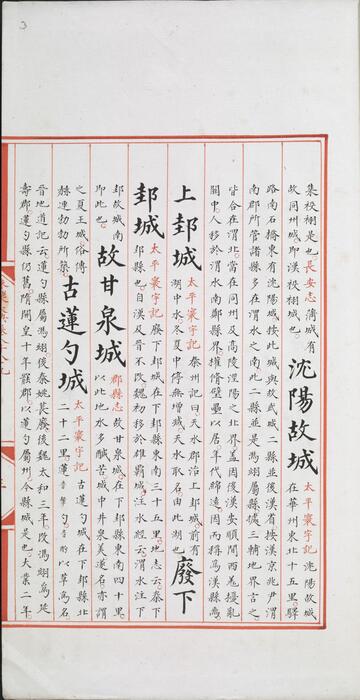 3
集祋栩是也長安志蒲城有
故同州城即漢祋栩城也
沈陽故城
太平寰宇記沈陽故城
在華州東北十五里驛
路南石橋東有沈陽城按此城與故武城二縣並後漢省按漢京兆尹渭
南郡所管諸縣多在渭水之南此二縣並是馮翊屬縣據三輔地界言之
皆合在渭北當在同州及高陵涇陽之北界蓋因後漢安順間西羌擾亂
關中人移於渭水南鄰縣界權脩壁壘以居年代綿遠因而稱爲漢縣焉
上邽城
太平寰宇記秦州記曰天水郡治上邽城前有
湖中水冬夏中停無增減天水取名由此湖也
廢下
邽城
太平寰宇記廢下邽城在下邽縣東南三十五里地志云秦下
邽縣也自漢及晉不改魏初移於雄霸城注水經云渭水注下
邽故城南
即此也
故甘泉城
郡縣志故甘泉城在下邽縣東南四十里
以此地水多鹹苦城中井泉美遂名亦謂
之夏王城俗傳
赫連勃勃所築
古蓮勺城
太平寰宇記古蓮勺城在下邽縣北
二十二里蓮音輦勺音酌以草爲名
晉地道記云蓮勺縣屬馮翊後秦姚萇廢後魏太和三年改馮翊爲延
壽郡蓮勺縣仍舊隋開皇十年廢郡以蓮勺屬州今縣城是也大業二年